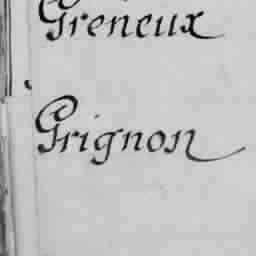 Greneux
Grignon